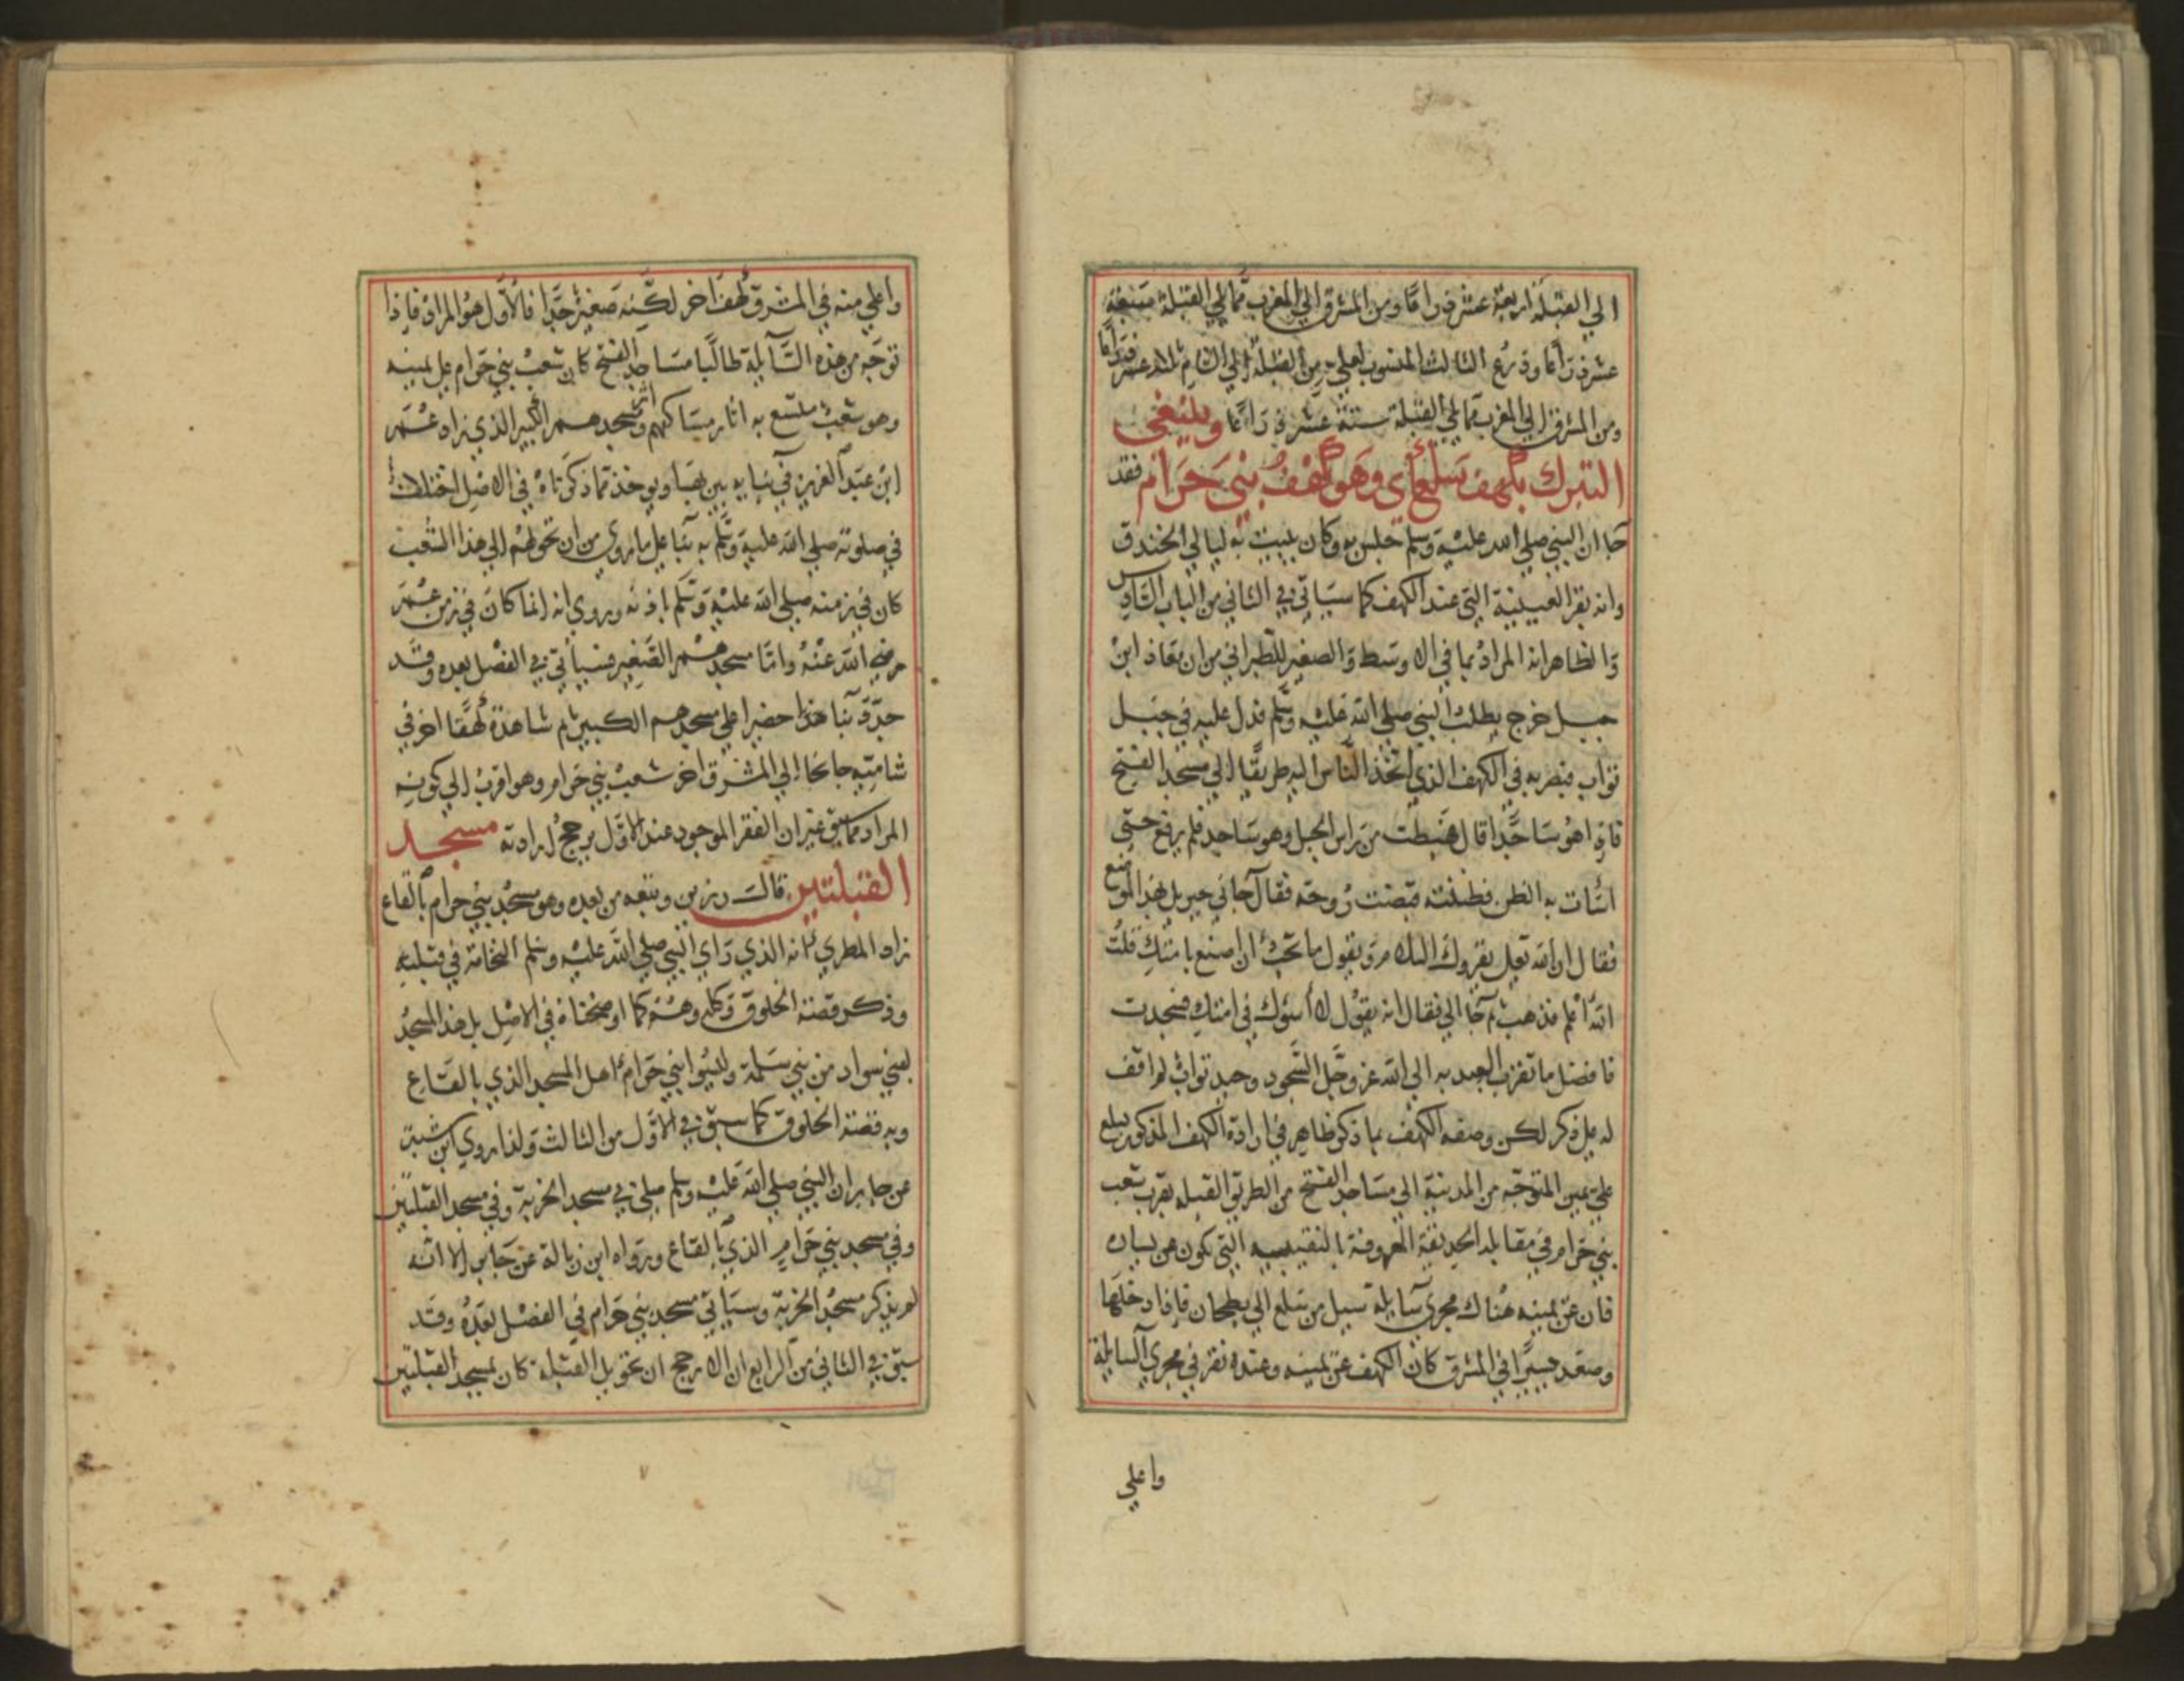 الي القبلة اربعة عشر ذراعا ومن المشرق الي المغرب مما يلي القبلة سبعة
عشر ذراعا وذرع الثالث المنسوب لعلي من القبلة الي الشام ثلاثة عشر ذراعا
ومن المشرق الي المغرب مما يلي القبلة ستة عشر ذراعا وينبغي
التبرك بكهف سلع اي وهو كهف بني حرام فقد
جا ان النبي صلي الله عليه وسلم جلس به وكان يبيت به ليالي الخندق
وانه نقر العيينة التي عند الكهف كما سياتي في الثاني من الباب السادس
والظاهر انه المراد بما في الاوسط والصغير للطبراني من ان معاذ ابن
جبل خرج يطلب النبي صلي الله عليه وسلم فدل عليه في جبل
ثواب فبصر به في الكهف الذي اتخذ الناس اليه طريقا الي مسجد الفتح
فاذا هو ساجدا قال هبطت من راس الجبل وهو ساجد فلم يرفع حتي
اسات به الظن فظننت قبضت روحه فقال جاني جبريل بهذا الموضع
فقال ان الله تعلي يقروك السلام ويقول ما تحب ان اصنع بامتك قلت
الله اعلم فذهب ثم جا الي فقال انه يقول لا اسوك في امتك فسجدت
فافضل ما تقرب العبد به الي الله عز وجل السجود وجبل ثواب لم اقف
له علي ذكر لكن وصفه الكهف بما ذكر ظاهر في ارادة الكهف المذكور بسلع
علي يمين المتوجه من المدينة الي مساجد الفتح من الطريق القبلية بقرب شعب
بني حرام في مقابلة الحديقة المعروفة بالنقيبيه التي تكون عن يساره
فان عن يمينه هناك مجري سايلة تسيل من سلع الي بطحان فاذا دخلها
وصعد يسيرا في المشرق كان الكهف عن يمينه وعنده نقر في مجري السايلة
واعلي
واعلي منه في المشرق كهف اخر لكنه صغير جدا فالاول هو المراد فاذا
توجه من هذه السايلة طالبا مساجد الفتح كان شعب بني حرام علي يمينه
وهو شعب متسع به اثار مساكنهم واثر مسجدهم الكبير الذي زاد عمر
ابن عبد العزيز في بنايه بين بقيا ويوخذ مما ذكرناه في الاصل اختلاف
في صلوته صلي الله عليه وسلم به بنا علي ما روي من ان تحولهم الي هذا الشعب
كان في زمنه صلي الله عليه وسلم باذنه وروي انه انما كان في زمن عمر
رضي الله عنه واما مسجدهم الصغير فسياتي في الفصل بعده وقد
جدد بنا هذا حضيرا علي مسجدهم الكبير ثم شاهدة كهفا اخر في
شاميه جانحا الي المشرق اخر شعب بني حرام وهو اقرب الي كونه
المراد مما سبق غير ان النقر الموجود عند الاول يرجح ارادته مسجد
القبلتين قال رزين وتبعه من بعده وهو مسجد بني حرام بالقاع
زاد المطري انه الذي راي النبي صلي الله عليه وسلم النخامة في قبلته
وذكر قصة الخلوق وكله وهم كما اوضحناه في الاصل بل هذا المسجد
لبني سواد من بني سلمة وليسوا بني حرام اهل المسجد الذي بالقاع
وبه قصة الخلوق كما سبق في الاول من الثالث ولذا روي ابن شبة
عن جابر ان النبي صلي الله عليه وسلم صلي في مسجد الخربة وفي مسجد القبلتين
وفي مسجد بني حرام الذي بالقاع ورواه ابن زبالة عن جابر الا انه
لم يذكر مسجد الخربة وسياتي مسجد بني حرام في الفصل بعده وقد
سبق في الثاني من الرابع ان الارجح ان تحويل القبلة كان بمسجد القبلتين